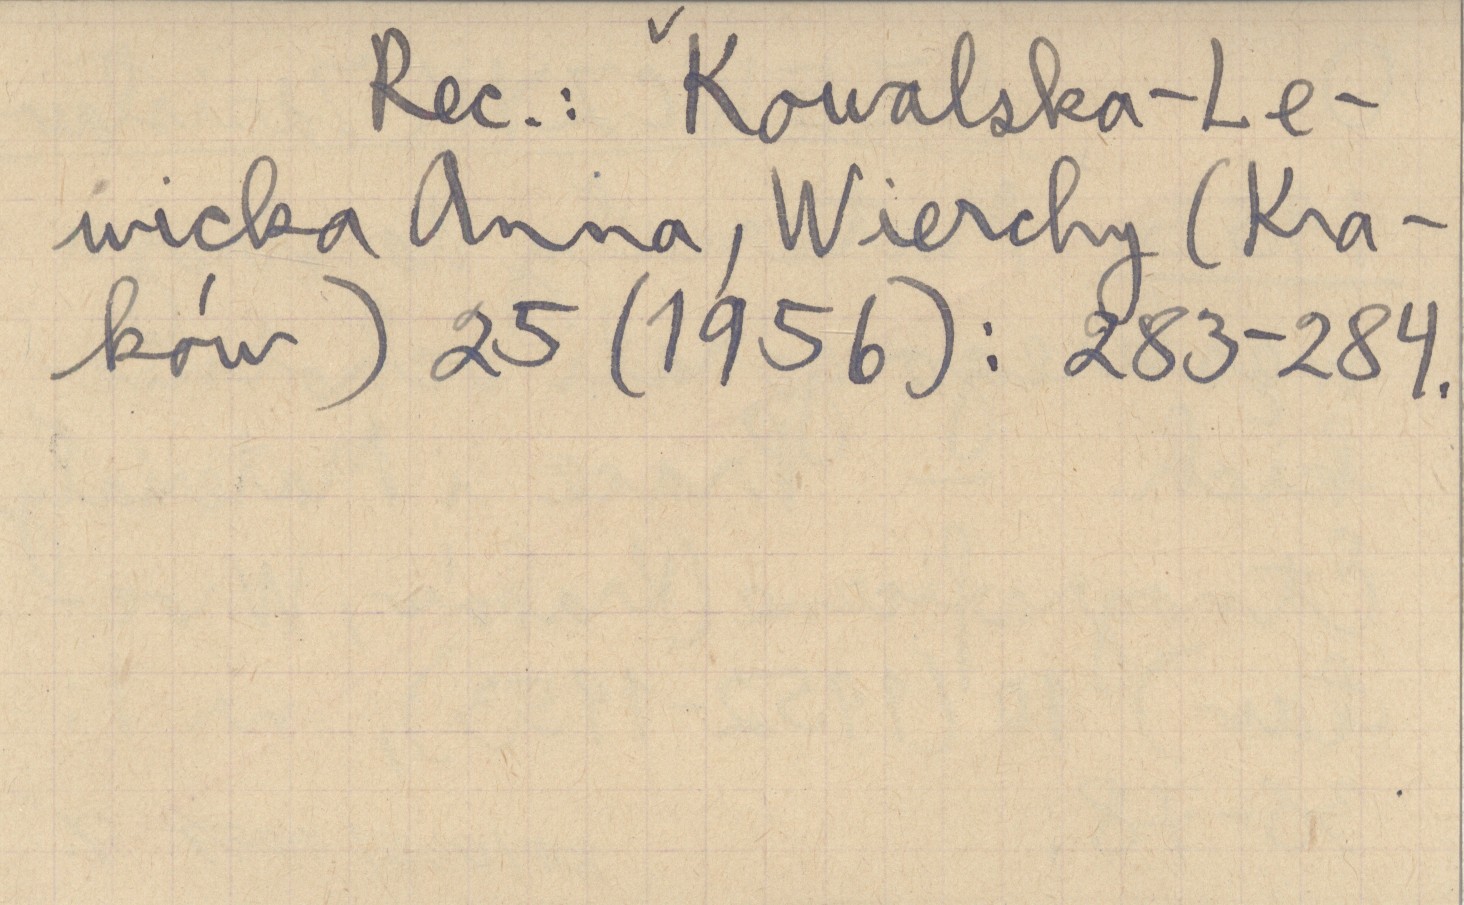 Rec.: Kowalska-Le-
wicka Anna, Wierchy (Kra-
ków) 25 (1956): 283-284.